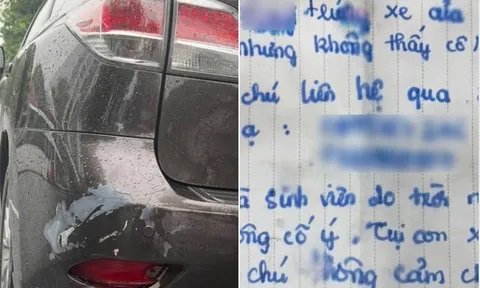 trúng xe của
nhưng không thấy cô
chú liên hệ qua
ạ :
sinh viên do trời
ông cố ý. Tụi con x
chú thông cảm ch